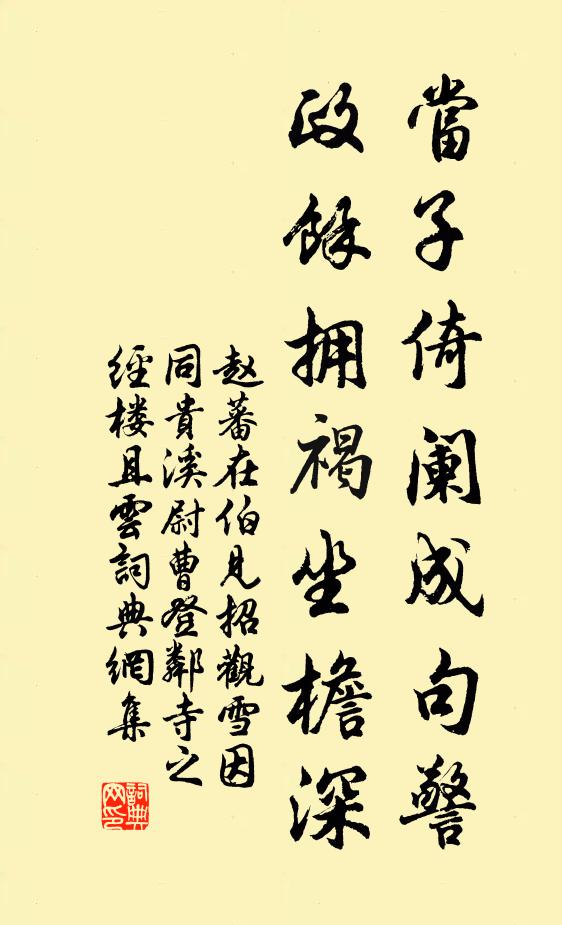 當子倚阑成句警
政餘拥褐坐檐深
赵蕃在伯見招觀雪因
同貴溪尉曹登鄰寺之
經楼且雲詞典網集
詞典
网印